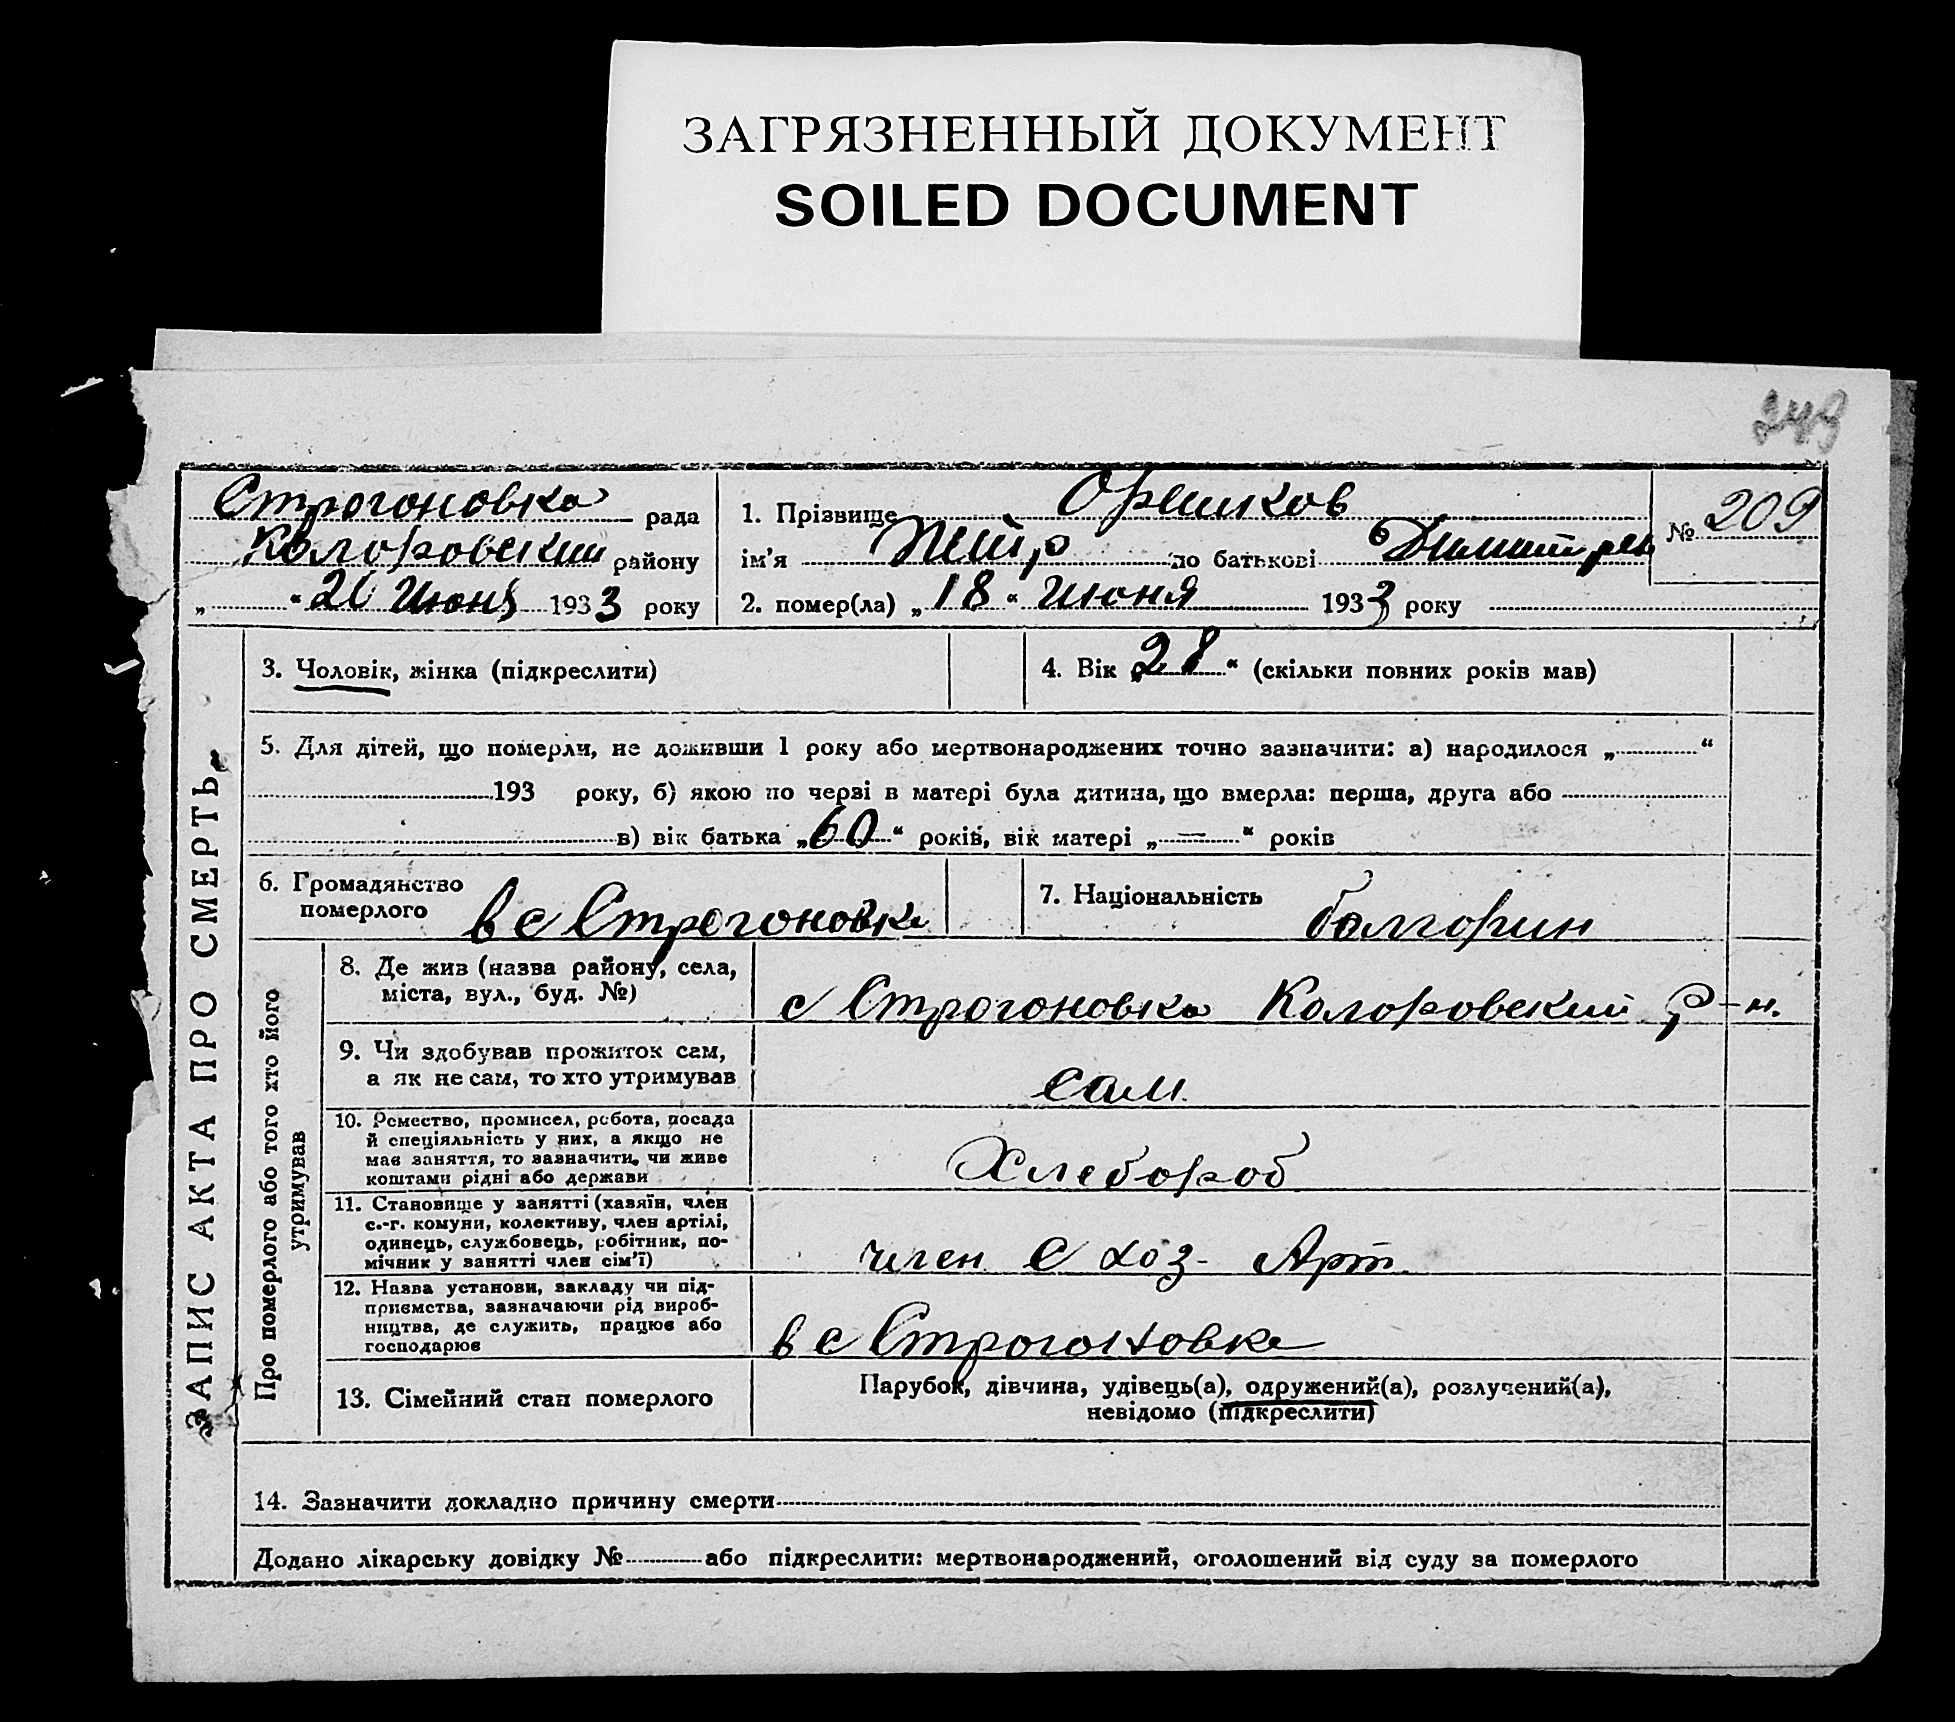 ЗАГРЯЗНЕННЫЙ ДОКУМЕНТ
SOILED DOCUMENT
249
Строгоновка рада
Колоровский району
„ “ 21 Июня 1933 року
1. Прізвище Орешков
ім'я Петр по батькові Димитрев
2. помер(ла) „18“ Июня 1933 року
№ 209
ЗАПИС АКТА ПРО СМЕРТЬ
3. Чоловік, жінка (підкреслити)
4. Вік „28“ (скільки повних років мав)
5. Для дітей, що померли, не доживши 1 року або мертвонароджених точно зазначити: а) народилося „ “
193 року, б) якою по черзі в матері була дитина, що вмерла: перша, друга або
в) вік батька „60“ років, вік матері „—“ років
6. Громадянство
померлого
в с Строгоновке
7. Національність болгорин
Про померлого або того хто його
утримував
8. Де жив (назва району, села,
міста, вул., буд. №)
с Строгоновка Колоровский р-н.
9. Чи здобував прожиток сам,
а як не сам, то хто утримував
сам
10. Ремество, промисел, робота, посада
й спеціяльність у них, а якщо не
має заняття, то зазначити, чи живе
коштами рідні або держави
Хлебороб
11. Становище у занятті (хазяїн, член
с.-г. комуни, колективу, член артілі,
одинець, службовець, робітник, по-
мічник у занятті член сім'ї)
член С хоз. Арт
12. Назва установи, закладу чи під-
приємства, зазначаючи рід вироб-
ництва, де служить, працює або
господарює
в с Строгоновке
13. Сімейний стан померлого
Парубок, дівчина, удівець(а), одружений(а), розлучений(а),
невідомо (підкреслити)
14. Зазначити докладно причину смерти
Додано лікарську довідку № або підкреслити: мертвонароджений, оголошений від суду за померлого